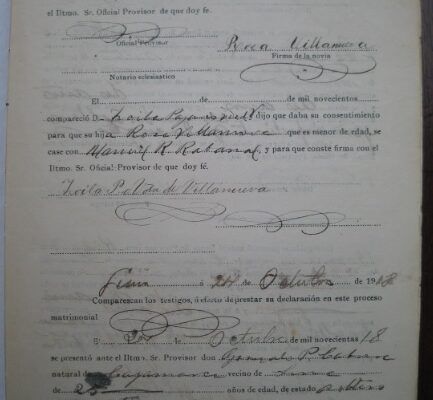 el Iltmo. Sr. Oficial Provisor de que doy fe.
Oficial Provisor
Rosa Villanueva
Firma de la novia
Notario eclesiastico
El de de mil novecientos
compareció D. Zoila dijo que daba su consentimiento
para que su hija Rosa Villanueva que es menor de edad, se
case con Manuel R. Rabanal y para que conste firma con el
Iltmo. Sr. Oficial Provisor de que doy fé.
Zoila P. Vda de Villanueva
Lima á 24 de Octubre de 1918
Comparezcan los testigos, á efecto de prestar su declaración en este proceso
matrimonial
E 24 de Octubre de mil novecientos 18
se presentó ante el Iltmo. Sr. Provisor don Gonzalo P.
natural de Cajamarca vecino de Lima
de 25 años de edad, de estado soltero